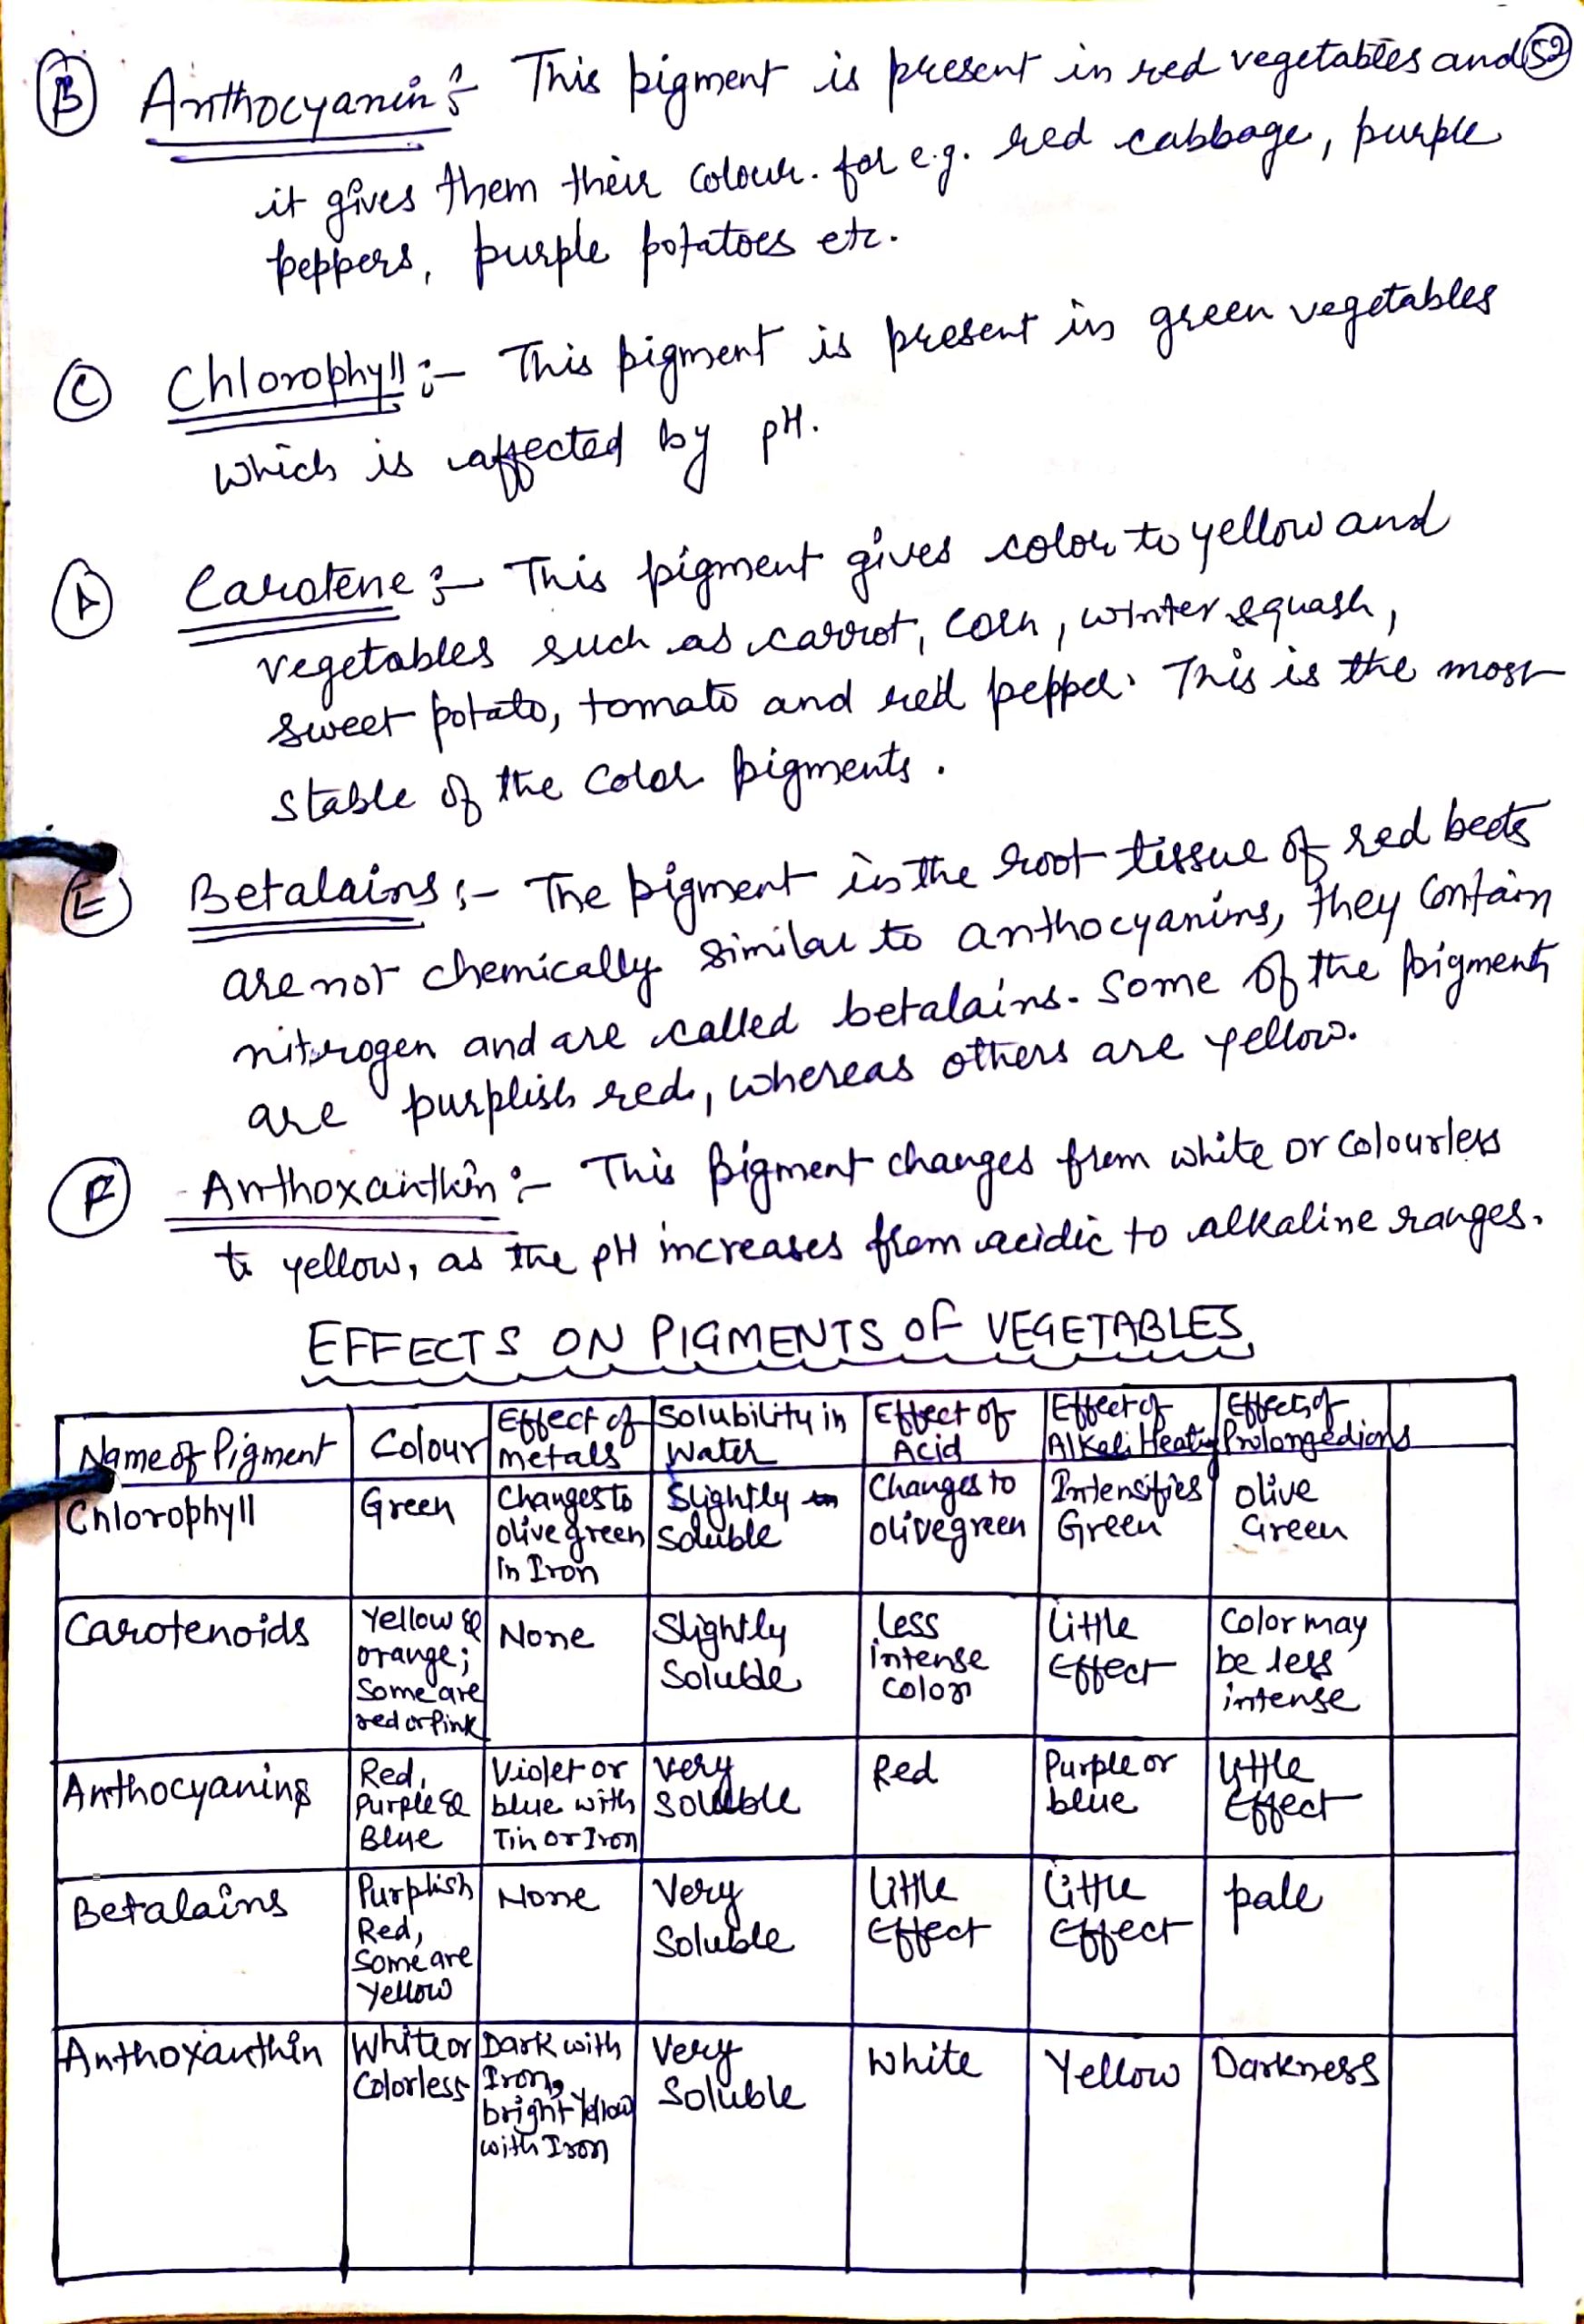 (B) Anthocyanin :- This pigment is present in red vegetables and (52)
it gives them their colour. for e.g. red cabbage, purple
peppers, purple potatoes etc.
(C) Chlorophyll :- This pigment is present in green vegetables
which is affected by pH.
Carotene :- This pigment gives color to yellow and
vegetables such as carrot, corn, winter squash,
sweet potato, tomato and red pepper. This is the most
stable of the color pigments.
(E) Betalains :- The pigment in the root tissue of red beets
are not chemically similar to anthocyanins, they contain
nitrogen and are called betalains. Some of the pigments
are purplish red, whereas others are yellow.
(F) Anthoxanthin :- This pigment changes from white or colourless
to yellow, as the pH increases from acidic to alkaline ranges.
EFFECTS ON PIGMENTS OF VEGETABLES
Name of Pigment | Colour | Effect of metals | Solubility in Water | Effect of Acid | Effect of Alkali | Effect of Prolonged
Chlorophyll | Green | Changes to olive green in Iron | Slightly soluble | Changes to olive green | Intensifies Green | Olive Green
Carotenoids | Yellow & orange; Some are red or Pink | None | Slightly Soluble | Less intense color | Little Effect | Color may be less intense
Anthocyanins | Red, Purple & Blue | Violet or blue with Tin or Iron | Very soluble | Red | Purple or blue | Little Effect
Betalains | Purplish Red, Some are Yellow | None | Very Soluble | Little Effect | Little Effect | pale
Anthoxanthin | White or Colorless | Dark with Iron, bright Yellow with Iron | Very Soluble | White | Yellow | Darkness